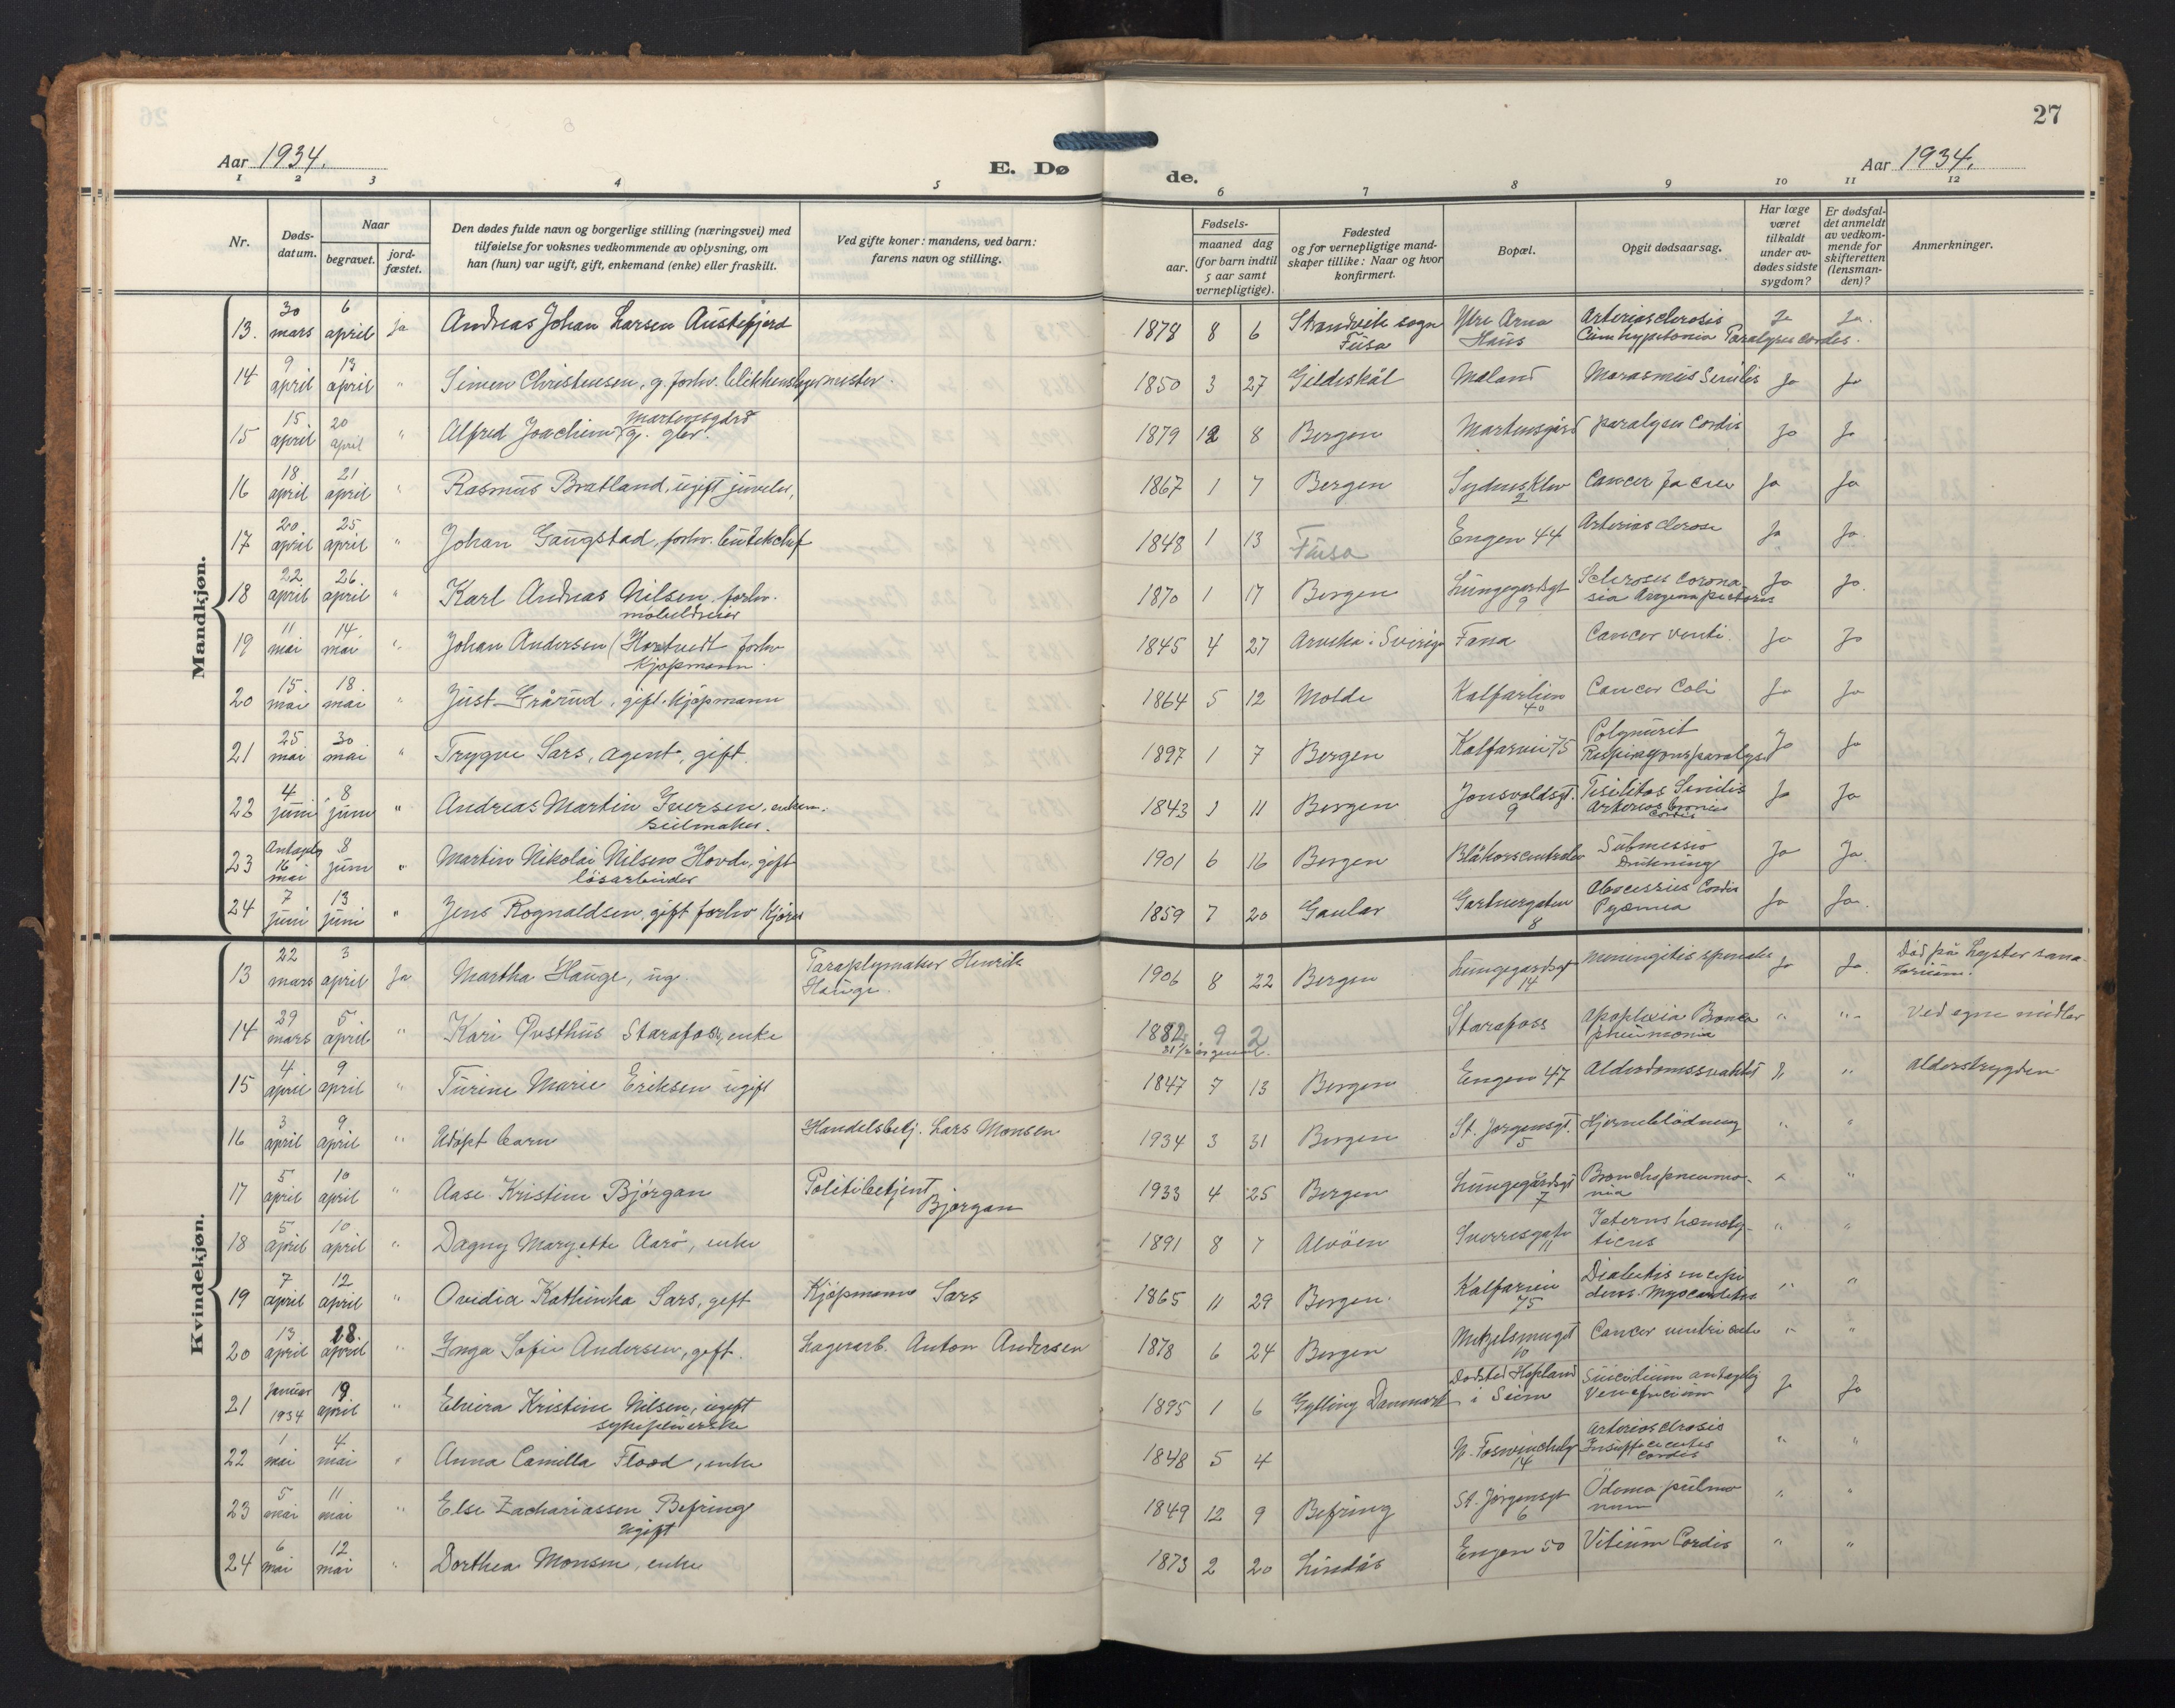 27
Aar 1934.
E. Dø
de.
Aar 1934.
1 2 3 4 5 6 7 8 9 10 11 12
Nr.
Døds-
datum.
Naar
begravet.
jord-
fæstet.
Den dødes fulde navn og borgerlige stilling (næringsvei) med
tilføielse for voksnes vedkommende av oplysning, om
han (hun) var ugift, gift, enkemand (enke) eller fraskilt.
Ved gifte koner: mandens, ved barn:
farens navn og stilling.
Fødsels-
aar.
maaned dag
(for barn indtil
5 aar samt
vernepligtige).
Fødested
og for vernepligtige mand-
skaper tillike: Naar og hvor
konfirmert.
Bopæl.
Opgit dødsaarsag.
Har læge
været
tilkaldt
under av-
dødes sidste
sygdom?
Er dødsfal-
det anmeldt
av vedkom-
mende for
skifteretten
(lensman-
den)?
Anmerkninger.
Mandkjøn.
13. 30 mars 6 april ja Andreas Johan Larsen Austefjord 1878 8 6 Strandvik sogn Fusa Ytre Arna Haus Arteriosclerosis Cum hypertonia Paralysis cordis. Ja Ja.
14 9 april 13 april " Simen Christensen, g. forhv. blikkenslagermester. 1850 3 27 Gildeskål Maland Marasmus Senilis Ja Ja
15 15 april 20 april " Alfred Joachim Martensgård g. 1879 12 8 Bergen Martensgård paralysis Cordis Ja Ja
16 18 april 21 april " Rasmus Bratland, ugift juveler, 1867 1 7 Bergen Sydnesklev 2 Cancer Ja Ja
17 20 april 25 april " Johan Gaugstad, forhv. butikchef 1848 1 13 Fusa Engen 44 Arteriosclerose Ja Ja.
18 22 april 26. april " Karl Andreas Nilsen forhv. 1870 1 17 Bergen Lungegårdsgt 9 Sclerosis Corona Angina pectoris Ja Ja.
19 11 mai 14 mai " Johan Andersen (Hortvedt forhv kjøpmann. 1845 4 27 Arvika i Sverige Fana Cancer ventr. Ja Ja
20 15 mai 18 mai " Just Grårud, gift. kjøpmann 1864 5 12 Molde Kalfarlien 40 Cancer Coli Ja Ja
21 25 mai 30 mai " Trygve Sars, agent, gift. 1897 1 7 Bergen Kalfarvei 75 Polynurit Respirasjonsparalyse Ja Ja
22 4 juni 8 juni " Andreas Martin Iversen, enkem. seilmaker. 1843 1 11 Bergen Jonsvoldsgt. 9 Senilis Ja Ja
23 Antagelig 16 mai 8 juni " Martin Nikolai Nilsen Hovde, gift løsarbeider 1901 6 16 Bergen Blåkorscentralen Submersio Drukning Ja Ja.
24 7 juni 13 juni " Jens Rognaldsen, gift forhv kjører 1859 7 20 Gaular Gartnergaten 8 Pyæmia Ja Ja.
Kvindekjøn.
13 22 mars 3 april Ja Martha Hauge, ug. Paraplymaker Henrik Hauge. 1906 8 22 Bergen Lungegardsgt 14 Meningitis Ja Ja. Død på Lyster sana- torium.
14 29 mars 5 april " Kari Øvsthus Starafoss, enke 1882 9 2 Starafoss Apoplexia Bronco pneumonia " " Ved egne midler
15 4 april 9 april " Turine Marie Eriksen ugift 1847 7 13 Bergen Engen 47 Alderdomssvakhet " " Alderstrygden
16 3 april 9 april " Udøpt barn Handelsbetj. Lars Monsen 1934 3 31 Bergen St. Jørgensgt. 5 Hjerneblødning " "
17 5 april 10 april " Aase Kristine Bjørgan Politibetjent Bjørgan 1933 4 25 Bergen Lungegårdsgt 7 Bronchopneumo- nia " "
18 5 april 10 april " Dagny Margethe Aarø, enke 1891 8 7 Alvøen Sverresgate 11 Icterus hæmoly- ticus " "
19 7 april 12 april " Ovidia Kathinka Sars, gift Kjøpmann Sars 1865 11 29 Bergen. Kalfarvei 75 Diabetis incipi dens. Myocarditis " "
20 13 april 18. april " Inga Sofie Andersen, gift. Lagerarb. Anton Andersen 1878 6 24 Bergen 10 Cancer ventriculi " "
21 Januar 1934 19 april " Elvira Kristine Nilsen, ugift sykepleierske 1895 1 6 Gylling Danmark Dødsted Hopland i Seim Suicidium antagelig Veneficium Ja Ja
22 1 mai 4 mai " Anna Camilla Flood, enke 1848 5 4 14 Arteriosclrosis Cordis " "
23 5 mai 11 mai " Else Zachariassen Befring ugift 1849 12 9 Befring St. Jørgensgt 6 Ödema pulmo num " "
24 6 mai 12 mai " Dorthea Monsen, enke 1873 2 20 Lindås Engen 50 Vitium Cordis " "